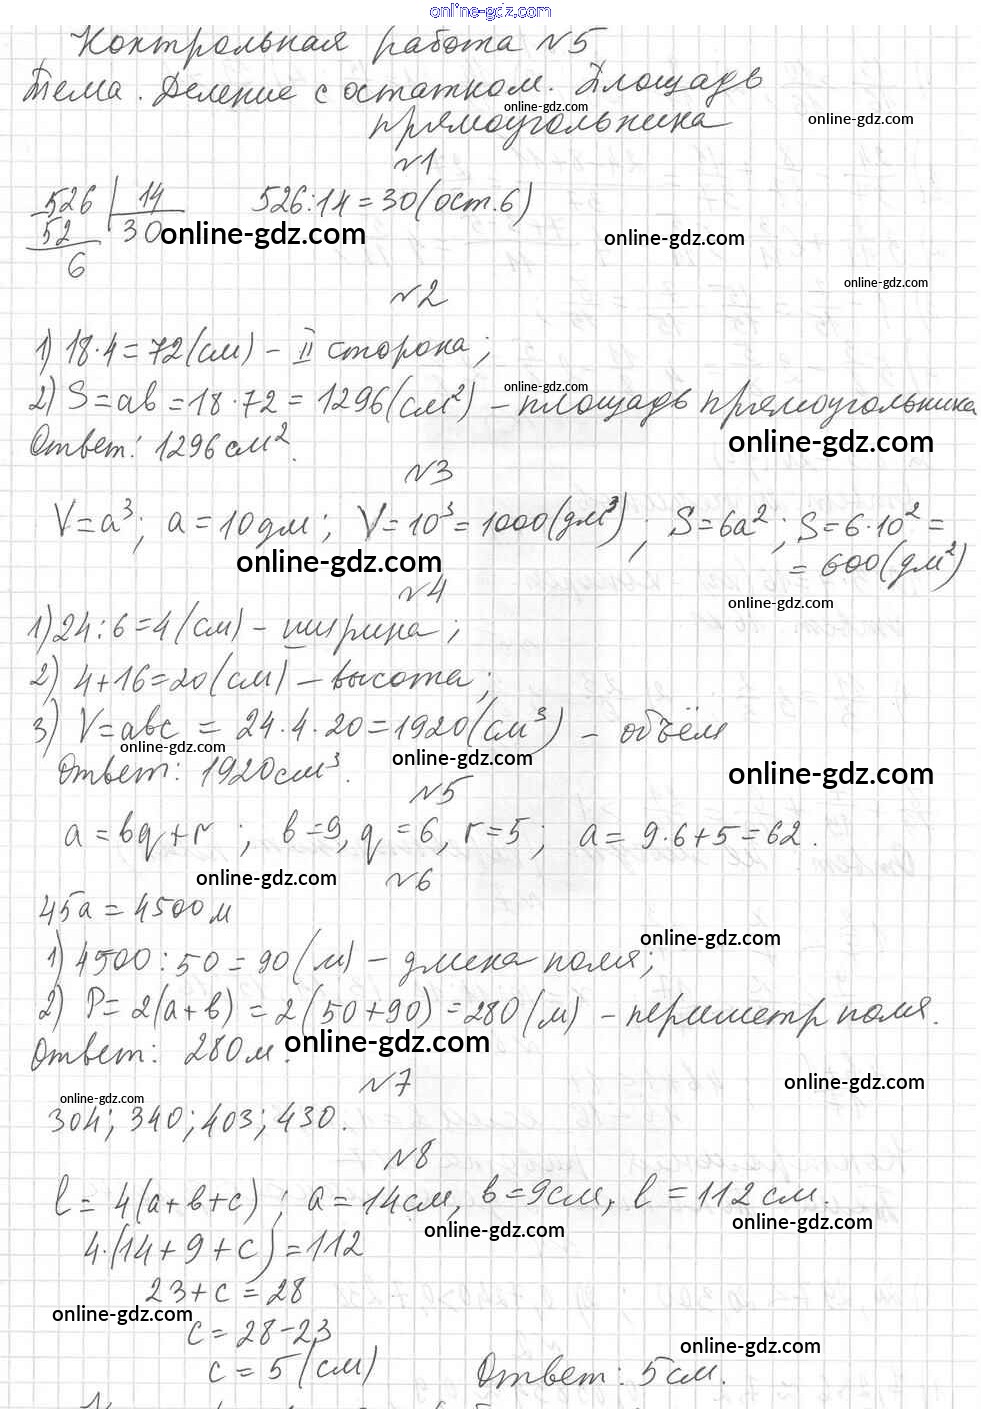 online-gdz.com
Контрольная работа №5
Тема. Деление с остатком. Площадь
online-gdz.com
прямоугольника
online-gdz.com
№1
526 | 14     526:14=30(ост.6)
52     30
6
online-gdz.com
online-gdz.com
online-gdz.com
№2
1) 18·4=72(см) – II сторона;
online-gdz.com
2) S=ab=18·72=1296(см²) – площадь прямоугольника
Ответ: 1296см².
online-gdz.com
№3
V=a³; a=10дм; V=10³=1000(дм³); S=6a²; S=6·10²=
=600(дм²)
online-gdz.com
№4
online-gdz.com
1) 24:6=4(см) – ширина;
2) 4+16=20(см) – высота;
3) V=abc = 24·4·20=1920(см³) – объём
online-gdz.com
online-gdz.com
Ответ: 1920см³.
online-gdz.com
№5
a=bq+r; b=9, q=6, r=5; a= 9·6+5=62.
online-gdz.com
№6
45a=4500м
online-gdz.com
1) 4500:50=90(м) – длина поля;
2) P=2(a+b)=2(50+90)=280(м) – периметр поля.
Ответ: 280м.
online-gdz.com
№7
online-gdz.com
online-gdz.com
304; 340; 403; 430.
№8
l= 4(a+b+c); a=14см, b=9см, l=112см.
online-gdz.com
online-gdz.com
4·(14+9+c)=112
23+c=28
online-gdz.com
c=28-23
online-gdz.com
c=5(см)     Ответ: 5см.